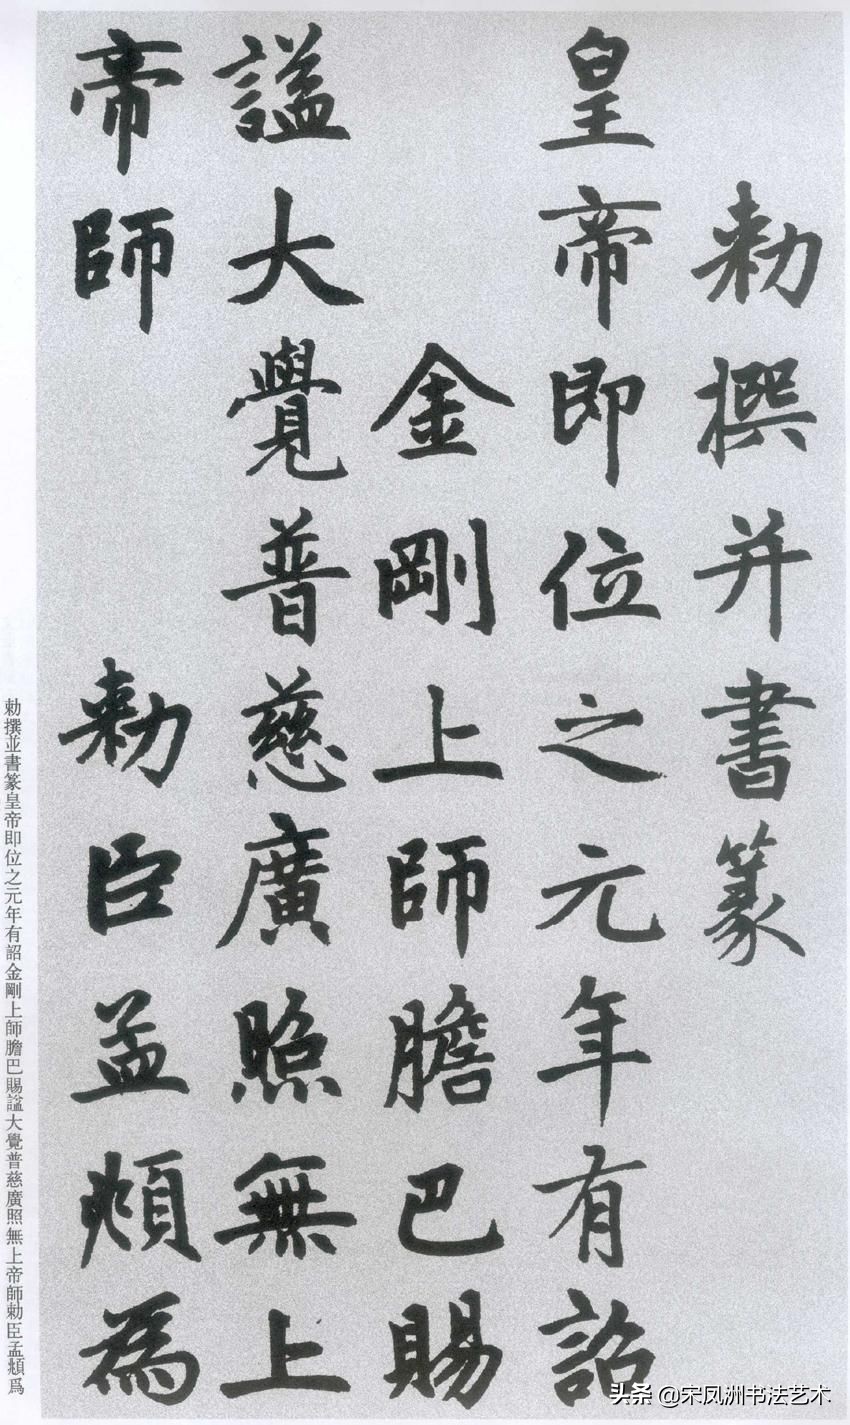 勅撰并書篆
皇帝即位之元年有詔
金剛上師膽巴賜
謚大覺普慈廣照無上
帝師
勅臣孟頫為
勅撰並書篆皇帝即位之元年有詔金剛上師膽巴賜謚大覺普慈廣照無上帝師勅臣孟頫爲
头条 @宋凤洲书法艺术